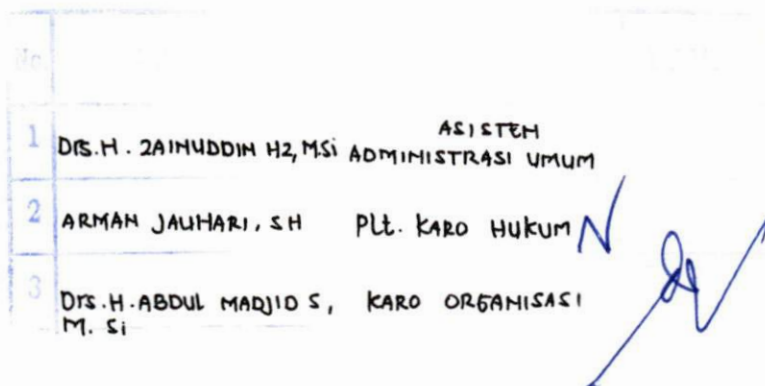 No.
1 Drs. H. ZAINUDDIN HZ, MSi ASISTEN ADMINISTRASI UMUM
2 ARMAN JAUHARI, SH Plt. KARO HUKUM
3 Drs. H. ABDUL MADJID S, M. Si KARO ORGANISASI